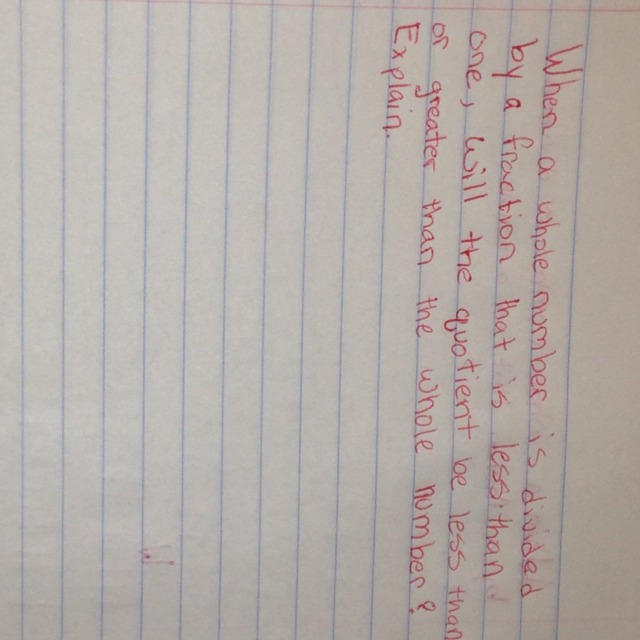 When a whole number is divided
by a fraction that is less than
one, will the quotient be less than
or greater than the whole number?
Explain.